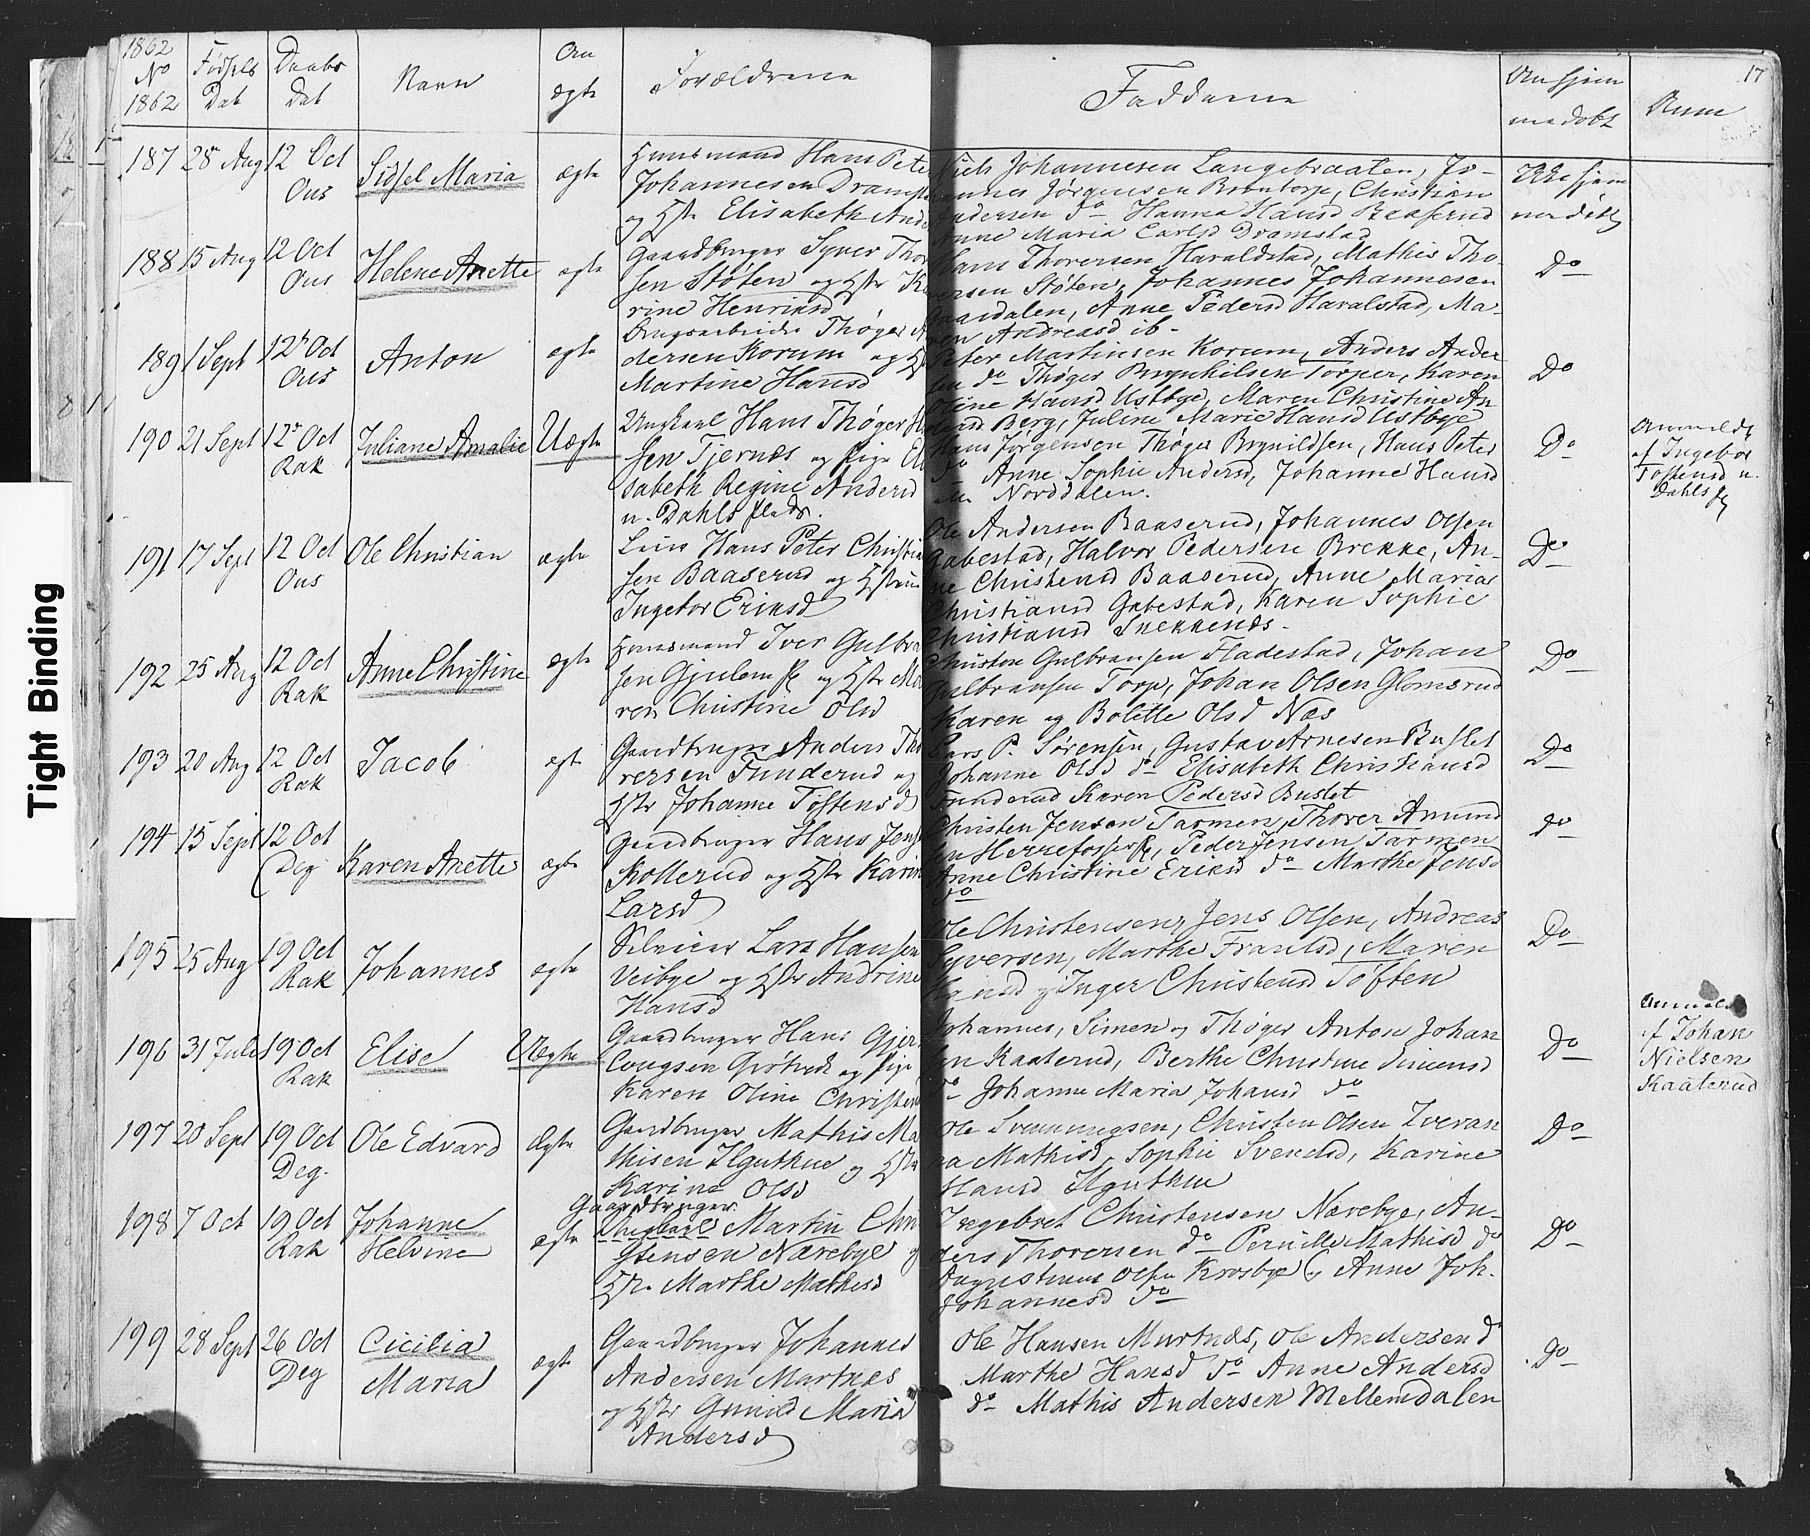 1862
No
1862
Fødsels
Dat
Daabs
Dat
Navn
Om
ægte
Forældrene
Fadderne
Om hjem
medøbt
Anm
17
187 28 Aug 12 Oct
Ous
Sidsel Maria
ægte
Huusmand Hans Peter
Johannesen Dramst
og Hstr Elisabeth Ande
Niels Johannesen Langebraaten, Jo-
annes Jørgensen Bromtorp, Christian
Andersen do Hanna Hansd Baaserud
Anne Maria Carlsd Dramstad
Ikke hjem
medøbt
188 15 Aug 12 Oct
Ous
Helene Anette
ægte
Gaardbruger Syver Thor
sen Støten og Hstr Ka
rine Henriksd
Hans Thoresen Haraldstad, Mathis Tho-
ersen Støten, Johannes Johannesen
Gaardalen, Anne Pedersd Haralstad, Ma-
ren Andreasd ib-
Do
189 1 Sept 12 Oct
Ous
Anton
ægte
Brugsarbeider Thøger A
dersen Korum og Hst
Martine Hansd
Peter Martinsen Korum, Anders Ander
sen do Thøger Brynhilsen Torper, Karen
Oline Hansd Ustbye, Maren Christine An
dersd Berg, Juline Marie Hansd Ustbye
Do
190 21 Sept 12 Oct
Rak
Juliane Amalie
Uægte
Ungkarl Hans Thøger H
sen Tjernæs og Pige El
sabeth Regine Andersd
u. Dahls plads.
Hans Jørgensen Thøger Brynildsen, Hans Peter
do Anne Sophie Andersd, Johanne Hansd
Norddalen.
Do
Anmeldt
af Ingebor
Tostensd u.
Dahls pl
191 17 Sept 12 Oct
Ous
Ole Christian
ægte
Leier Hans Peter Christia
sen Baaserud og Hstru
Ingebor Eriksd
Ole Andersen Baaserud, Johannes Olsen
Gabestad, Halvor Pedersen Brekke, An-
ne Christensd Baaserud, Anne Maria
Christiansd Gabestad, Karen Sophie
Christiansd Snekkenæs.
Do
192 25 Aug 12 Oct
Rak
Anne Christine
ægte
Huusmand Iver Gulbra
sen Gjulem pl og Hstr Ma
ren Christine Olsd
Christen Gulbransen Fladestad, Johan
Gulbransen Torp, Johan Olsen Glomsrud
Karen og Bolette Olsd Næs
Do
193 20 Aug 12 Oct
Rak
Jacob
ægt
Gaardbruger Anders Tho
resen Funderud og
Hstr Johanne Tostensd
Lars P. Sørensen, Gustav Arnesen Buslet
Johanne Olsd do Elisabeth Christiansd
Funderud Karen Pedersd Buslet
Do
194 15 Sept 12 Oct
Deg
Karen Anette
ægte
Gaardbruger Hans Jens
Kollerud og Hstr Karin
Larsd
Christen Jensen Tarmen, Thorer Amund
sen Herrefosser pl, Peder Jensen Tarmen
Anne Christine Eriksd do Marthe Jensd
do
do
195 25 Aug 19 Oct
Rak
Johannes
ægte
Selveier Lars Hansen
Veibye og Hstr Andrine
Hansd
Ole Christensen, Jens Olsen, Andreas
Syversen, Marthe Frantsd, Maren
Hansd og Inger Christensd Toften
Do
196 31 Juli 19 Oct
Rak
Elise
Uægte
Gaardbruger Hans Gjer
Longsen Grøtvedt og Pige
Karen Oline Christens
Johannes, Simen og Thøger Anton Johan
sen Kaaterud, Berthe Christine Simensd
do Johanne Maria Johansd do
Do
Anmeldt
af Johan
Nielsen
Kaaterud
197 20 Sept 19 Oct
Deg.
Ole Edvard
Ægte
Gaardbruger Mathis Ma
thisen Ilguthue og Hstr
Karine Olsd
Ole Svenningsen, Christen Olsen Tveran
na Mathisd, Sophie Svendsd, Karine
Hansd Ilguthue
Do
198 7 Oct 19 Oct
Rak
Johanne
Helvine
ægte
Gaardbruger
Ungkarl Martin Chri
stensen Nærebye og
Hstr Marthe Mathisd
Ingebret Christensen Nærebye, An-
ders Thoresen do Pernille Mathisd do
Augustinus Olsen Krosbye og Anne Joh.
Johannesd do
Do
199 28 Sept 26 Oct
Deg
Cicilia
Maria
ægte
Gaardbruger Johannes
Andersen Martnæs
og Hstr Gunild Maria
Andersd
Ole Hansen Murtnæs, Ole Andersen d
Marthe Hansd do Anne Andersd
do Mathis Andersen Mellemdalen
Do
Tight Binding